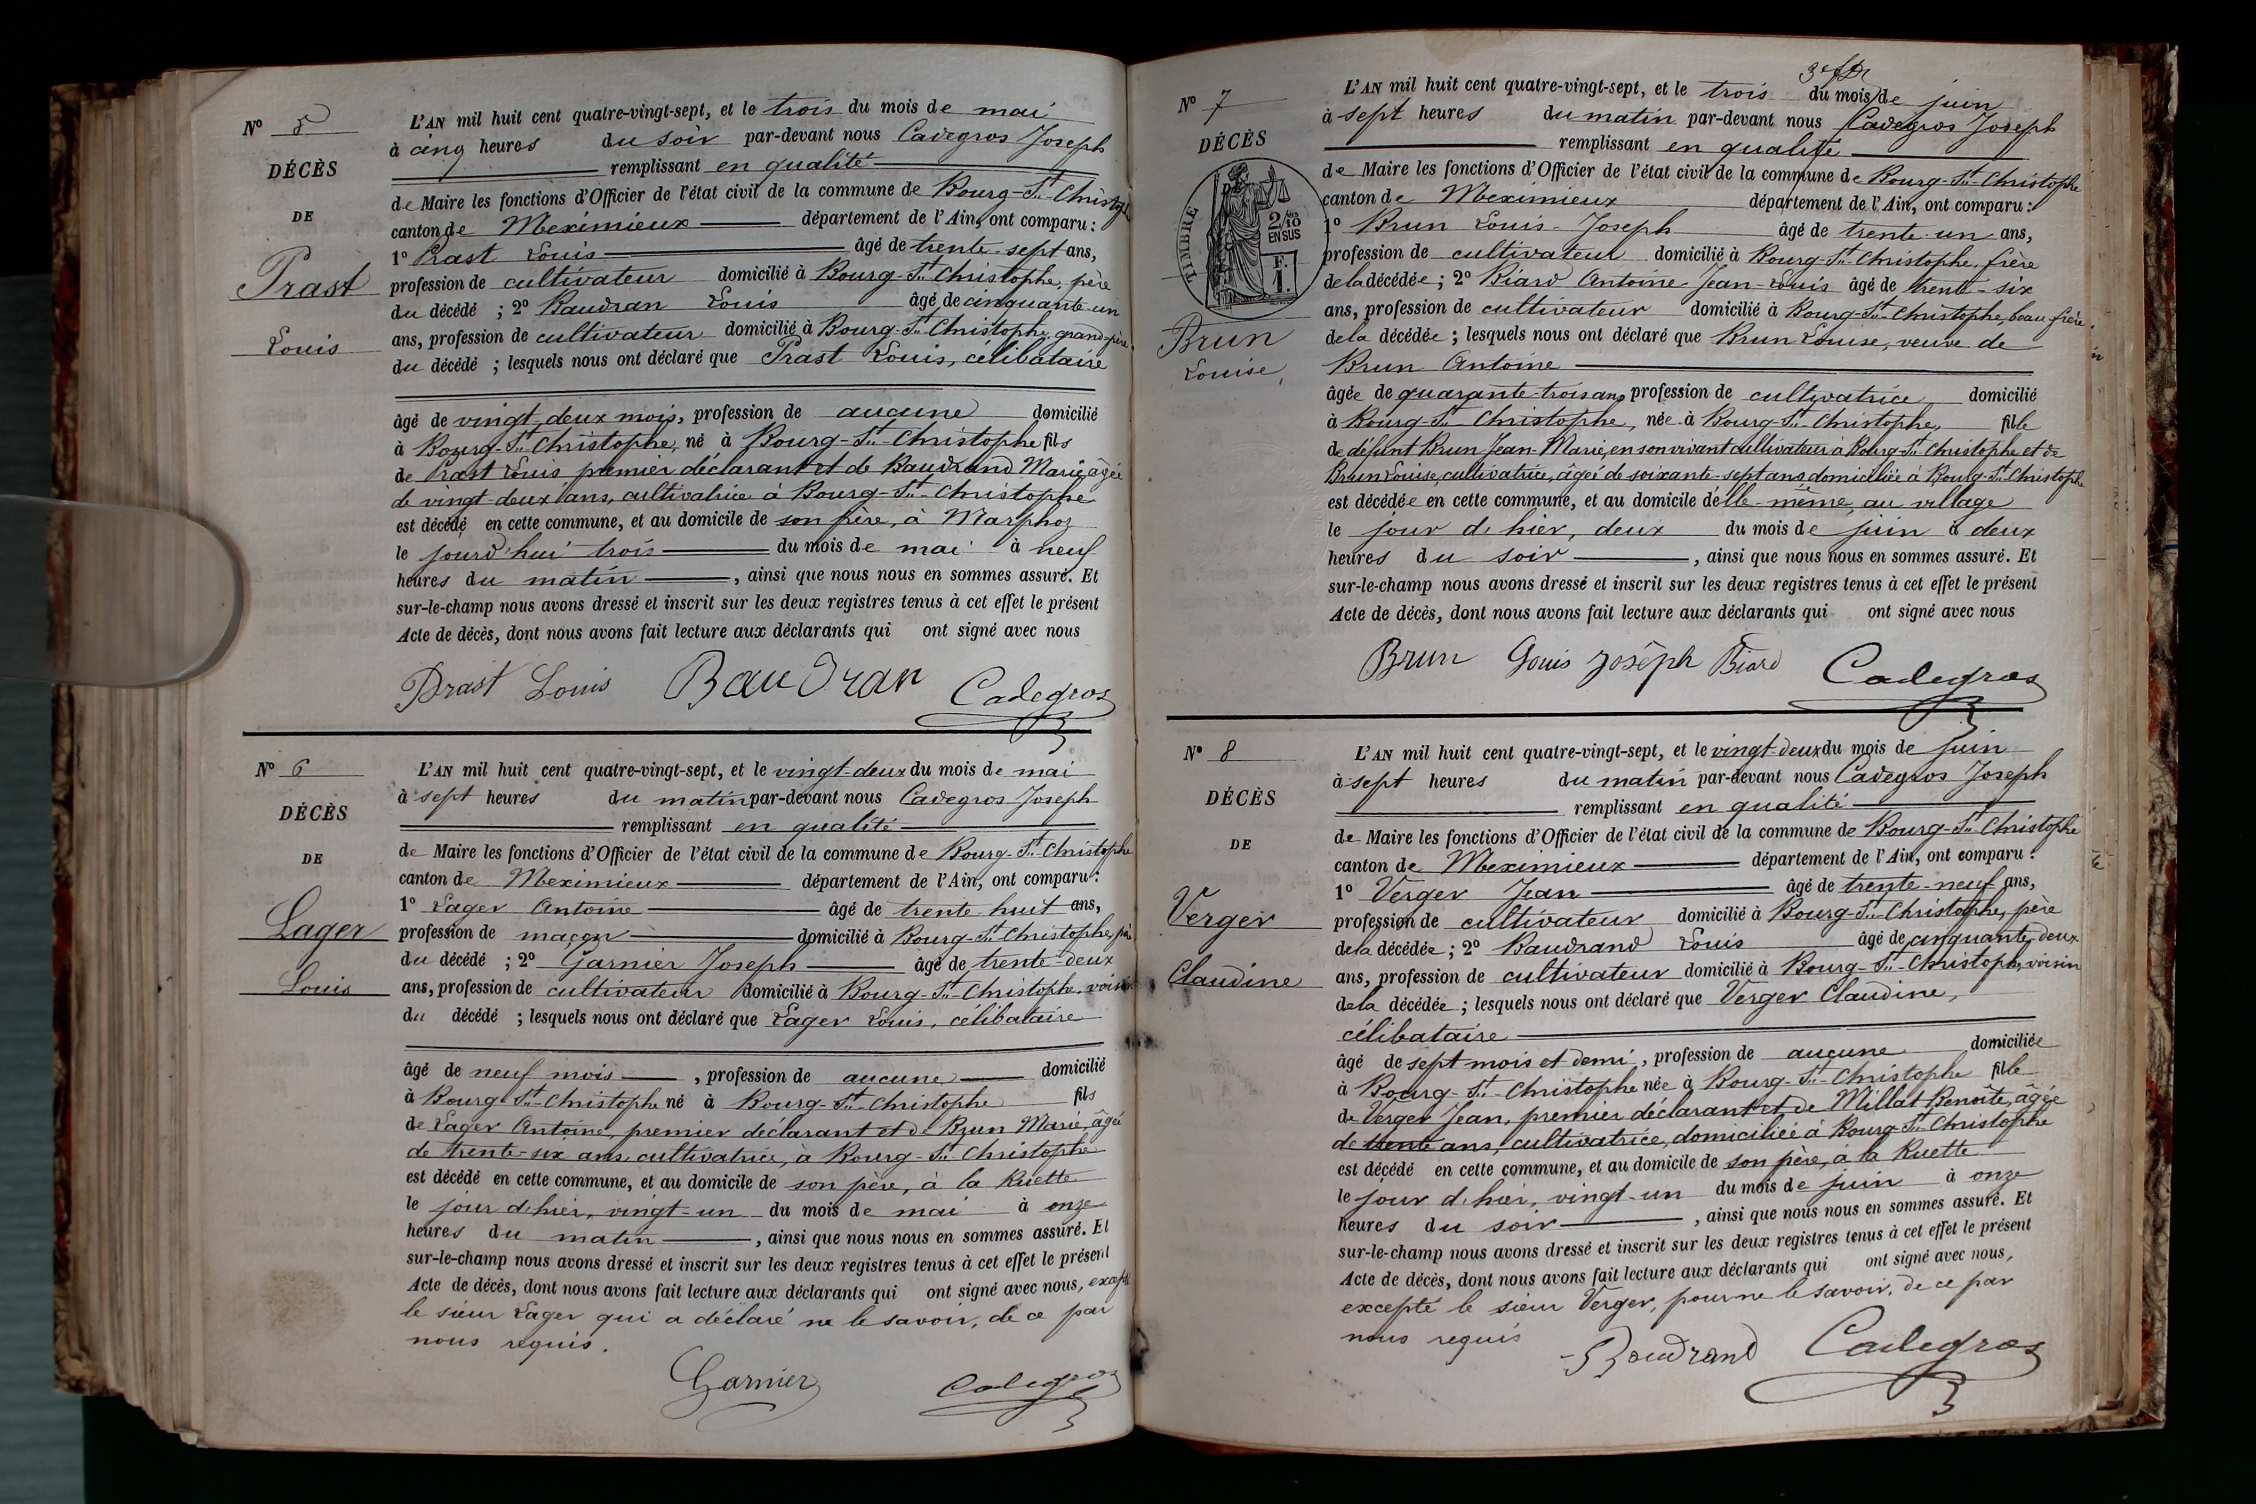 N° 5
DÉCÈS
DE
Prast
Louis
L'AN mil huit cent quatre-vingt-sept, et le trois du mois de mai
à cinq heures du soir par-devant nous Cadegros Joseph
remplissant en qualité
de Maire les fonctions d'Officier de l'état civil de la commune de Bourg-St-Christophe
canton de Meximieux département de l'Ain, ont comparu :
1° Prast Louis âgé de trente-sept ans,
profession de cultivateur domicilié à Bourg-St-Christophe, père
du décédé ; 2° Baudran Louis âgé de cinquante-un
ans, profession de cultivateur domicilié à Bourg-St-Christophe, grand-père
du décédé ; lesquels nous ont déclaré que Prast Louis, célibataire
âgé de vingt-deux mois, profession de aucune domicilié
à Bourg-St-Christophe, né à Bourg-St-Christophe fils
de Prast Louis premier déclarant et de Baudrand Marie, âgée
de vingt-deux ans, cultivatrice à Bourg-St-Christophe
est décédé en cette commune, et au domicile de son père, à Marphoz
le jourd'hui trois du mois de mai à neuf
heures du matin, ainsi que nous nous en sommes assuré. Et
sur-le-champ nous avons dressé et inscrit sur les deux registres tenus à cet effet le présent
Acte de décès, dont nous avons fait lecture aux déclarants qui ont signé avec nous
Prast Louis Baudran Cadegros
N° 6
DÉCÈS
DE
Lager
Louis
L'AN mil huit cent quatre-vingt-sept, et le vingt-deux du mois de mai
à sept heures du matin par-devant nous Cadegros Joseph
remplissant en qualité
de Maire les fonctions d'Officier de l'état civil de la commune de Bourg-St-Christophe
canton de Meximieux département de l'Ain, ont comparu :
1° Lager Antoine âgé de trente huit ans,
profession de maçon domicilié à Bourg-St-Christophe, père
du décédé ; 2° Garnier Joseph âgé de trente-deux
ans, profession de cultivateur domicilié à Bourg-St-Christophe, voisin
du décédé ; lesquels nous ont déclaré que Lager Louis, célibataire
âgé de neuf mois, profession de aucune domicilié
à Bourg-St-Christophe né à Bourg-St-Christophe fils
de Lager Antoine, premier déclarant et de Brun Marie, âgée
de trente-six ans cultivatrice, à Bourg-St-Christophe
est décédé en cette commune, et au domicile de son père, à la Ruette
le jour d'hier, vingt-un du mois de mai à onze
heures du matin, ainsi que nous nous en sommes assuré. Et
sur-le-champ nous avons dressé et inscrit sur les deux registres tenus à cet effet le présent
Acte de décès, dont nous avons fait lecture aux déclarants qui ont signé avec nous, excepté
le sieur Lager qui a déclaré ne le savoir, de ce par
nous requis.
Garnier Cadegros
N° 7
DÉCÈS
TIMBRE
2/10
EN SUS
F.
1.
Brun
Louise
L'AN mil huit cent quatre-vingt-sept, et le trois du mois de juin
à sept heures du matin par-devant nous Cadegros Joseph
remplissant en qualité
de Maire les fonctions d'Officier de l'état civil de la commune de Bourg-St-Christophe
canton de Meximieux département de l'Ain, ont comparu :
1° Brun Louis-Joseph âgé de trente-un ans,
profession de cultivateur domicilié à Bourg-St-Christophe, frère
de la décédée ; 2° Biard Antoine Jean-Louis âgé de trente-six
ans, profession de cultivateur domicilié à Bourg-St-Christophe, beau frère
de la décédée ; lesquels nous ont déclaré que Brun Louise, veuve de
Brun Antoine
âgée de quarante-trois ans profession de cultivatrice domicilié
à Bourg-St-Christophe, née à Bourg-St-Christophe, fille
de défunt Brun Jean-Marie, en son vivant cultivateur à Bourg-St-Christophe et de
Brun Louise, cultivatrice, âgée de soixante-sept ans domiciliée à Bourg-St-Christophe
est décédée en cette commune, et au domicile d'elle-même, au village
le jour d'hier, deux du mois de juin à deux
heures du soir, ainsi que nous nous en sommes assuré. Et
sur-le-champ nous avons dressé et inscrit sur les deux registres tenus à cet effet le présent
Acte de décès, dont nous avons fait lecture aux déclarants qui ont signé avec nous
Brun Louis Joseph Biard Cadegros
N° 8
DÉCÈS
DE
Verger
Claudine
L'AN mil huit cent quatre-vingt-sept, et le vingt-deux du mois de juin
à sept heures du matin par-devant nous Cadegros Joseph
remplissant en qualité
de Maire les fonctions d'Officier de l'état civil de la commune de Bourg-St-Christophe
canton de Meximieux département de l'Ain, ont comparu :
1° Verger Jean âgé de trente-neuf ans,
profession de cultivateur domicilié à Bourg-St-Christophe, père
de la décédée ; 2° Baudrand Louis âgé de cinquante-deux
ans, profession de cultivateur domicilié à Bourg-St-Christophe, voisin
de la décédée ; lesquels nous ont déclaré que Verger Claudine,
célibataire
âgé de sept mois et demi, profession de aucune domiciliée
à Bourg-St-Christophe née à Bourg-St-Christophe fille
de Verger Jean, premier déclarant et de Millat Benoîte, âgée
de trente ans, cultivatrice, domiciliée à Bourg-St-Christophe
est décédé en cette commune, et au domicile de son père, à la Ruette
le jour d'hier, vingt-un du mois de juin à onze
heures du soir, ainsi que nous nous en sommes assuré. Et
sur-le-champ nous avons dressé et inscrit sur les deux registres tenus à cet effet le présent
Acte de décès, dont nous avons fait lecture aux déclarants qui ont signé avec nous,
excepté le sieur Verger, pour ne le savoir, de ce par
nous requis
Baudrand Cadegros